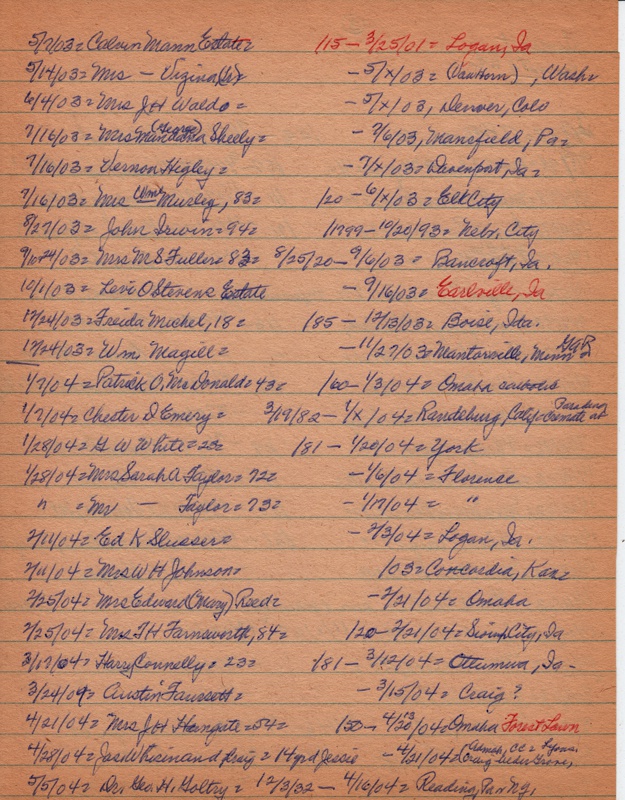 5/7/03 = Calvin Mann Estate = /15 - 3/25/01 = Logan, Ia
5/14/03 = Mrs - Vizina (W) = - 5/x/03 = (VanHorn), Wash =
6/4/03 = Mrs J H Waldo = - 5/x/03, Denver, Colo
7/16/03 = Mrs (George) Sheely = - 7/6/03, Mansfield, Pa =
7/16/03 = Vernon Higley = - 7/x/03 = Davenport, Ia =
7/16/03 = Mrs Wm Mursley, 83 = /20 - 6/x/03 = Elk City
8/27/03 = John Irwin = 94 = 1799 - 10/20/93 = Nebr. City
9/10+24/03 = Mrs M S Fuller = 83 = 8/25/20 - 9/6/03 = Bancroft, Ia.
10/1/03 = Levi O Stevens Estate - 9/16/03 = Earlville, Ia
12/24/03 = Freida Michel, 18 = /85 - 12/13/03 = Boise, Ida.
12/24/03 = Wm. Magill = - 11/27/03 = Mantorville, Minn GAR
1/7/04 = Patrick O. McDonald = 43 = /60 - 1/3/04 = Omaha
1/7/04 = Chester D Emery = 3/19/82 - 1/x/04 = Randsburg, Calif = Cremate at Pasadena
1/28/04 = G W White = 23 = /81 - 1/20/04 = York
1/28/04 = Mrs Sarah A Taylor = 72 = - 1/6/04 = Florence
" = Mr - Taylor = 73 = - 1/17/04 = "
2/11/04 = Ed K Slusser = - 2/3/04 = Logan, Ia.
2/11/04 = Mrs W H Johnson = /03 = Concordia, Kan =
2/25/04 = Mrs Edward (Mary) Reed = - 2/21/04 = Omaha
2/25/04 = Mrs T H Farnsworth, 84 = /20 - 2/21/04 = Sioux City, Ia
3/17/04 = Harry Connelly = 23 = /81 - 3/12/04 = Ottumwa, Ia -
3/24/04 = Austin Faussett = - 3/15/04 = Craig?
4/21/04 = Mrs J H Hungate = 54 = /50 - 4/13/04 = Omaha Forest Lawn
4/28/04 = Jas W = 14 yrd Jessie - 4/21/04 = Craig
5/5/04 = Dr. Geo. H. Goltry = 12/3/32 - 4/16/04 = Reading,